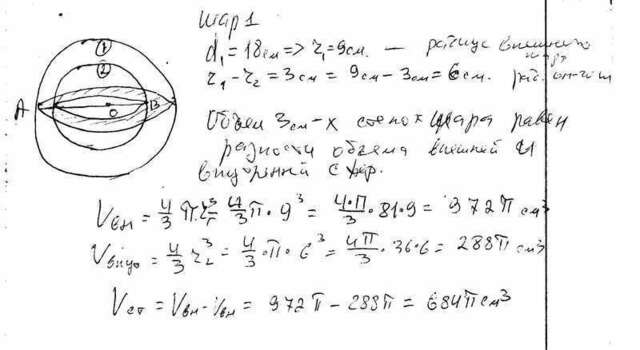 Шар 1
d₁ = 18см => r₁ = 9см. — радиус внешнего шара
r₁ - r₂ = 3см = 9см - 3см = 6см.
①
②
A
O
B
Объем 3см-х стенок шара равен
разности объема внешней и
внутренней сфер.
Vвн = 4/3 πr₁³ = 4/3 π · 9³ = 4·π/3 · 81·9 = 972π см³
Vвнут = 4/3 r₂³ = 4/3 · π · 6³ = 4π/3 · 36·6 = 288π см³
Vст = Vвн - Vвн = 972π - 288π = 684π см³